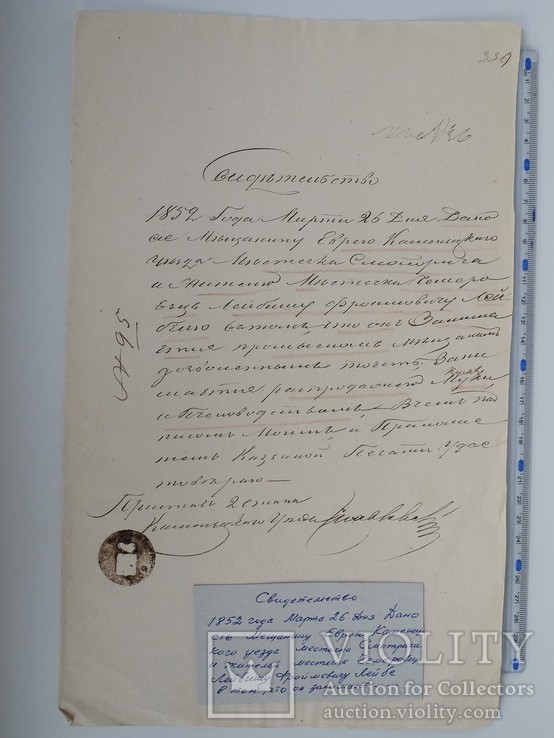 339
Свидѣтельство
1852 Года Марта 26 Дня Дано
сіе Мѣщанину Еврею Каменецкого
уѣзда Мѣстечка Смотрича
и Жителю Мѣстечка
Лейбишу Фроимовичу Лей
бѣ въ томъ что онъ Занима
ется промысломъ Мѣщанамъ
дозволеннымъ тоесть Зани
мается распродажею Муки
и Пчеловодствомъ Въ чемъ под
писомъ Моимъ и Приложе
ніемъ Казенной Печати Удос
товѣряю
№ 95
Приставъ 2 стана
Каменецкого Уѣзда
Свидетельство
1852 года Марта 26 дня Дано
сіе мещанину Еврею Каменец
кого уезда местечка Смотрича
и жителю местечка
Лейбишу Фроймовичу Лейбе
в том, что он
VIOLITY
Auction for Collectors
auction.violity.com